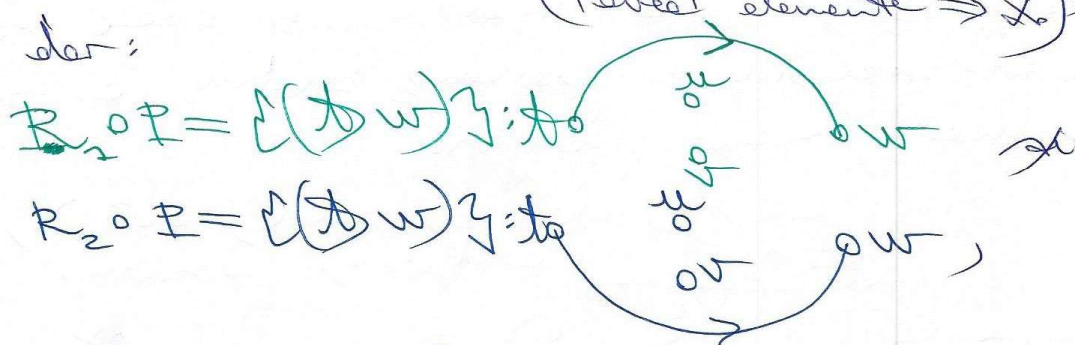 elemente ⇒
dar:
R₁∘P = {(t, w)}: t u v w
R₂∘P = {(t, w)}: t u v w,